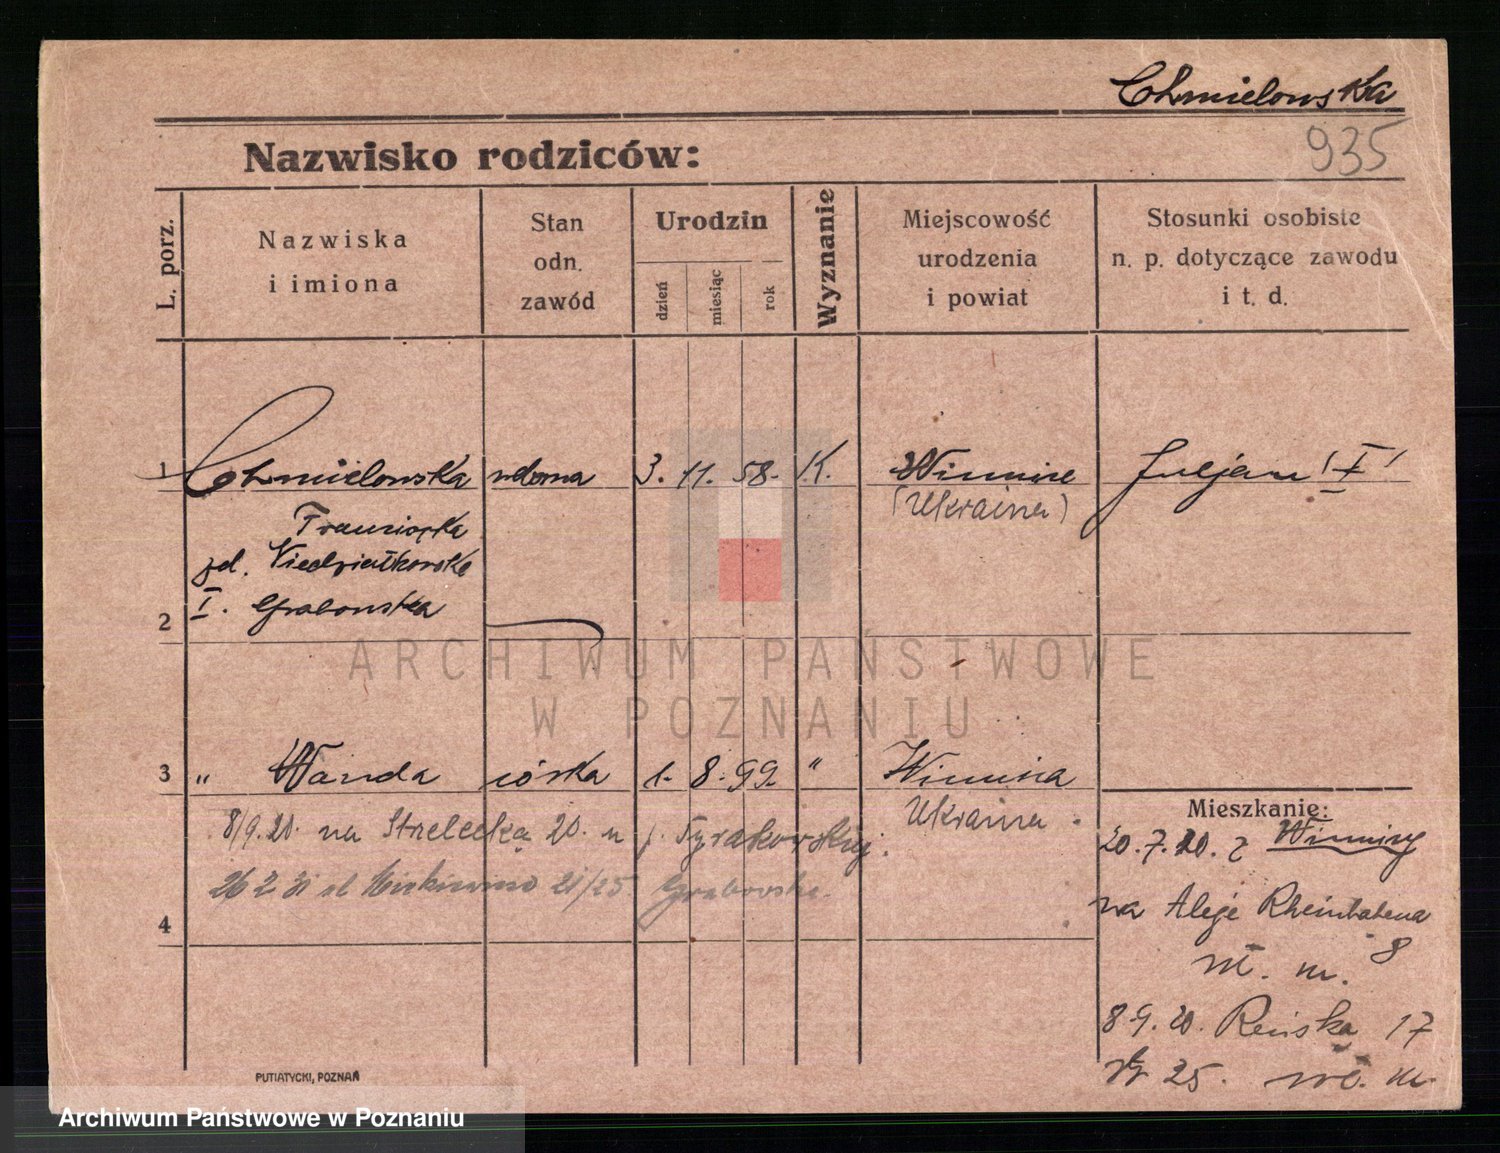 Chmielowska
935
Nazwisko rodziców:
L. porz.
Nazwiska
i imiona
Stan
odn.
zawód
Urodzin
dzień
miesiąc
rok
Wyznanie
Miejscowość
urodzenia
i powiat
Stosunki osobiste
n. p. dotyczące zawodu
i t. d.
1 Chmielowska wdowa 3. 11. 58. K. Winnice Juljan I
(Ukraina)
Franciszka
zd. Niedziałkowska
I. Grabowska
2
ARCHIWUM PAŃSTWOWE
W POZNANIU
3 " Wanda córka 1. 8. 99. " Winnica
Ukraina.
8/9.20. na Strzelecką 20. u p. Tyrakowskiej.
26 2 21 21/25. Grabowska.
4
Mieszkanie:
20.7.20. z Winnicy
na Aleje Rheinbabena
8
m.
8.9.20. Reńska 17
25. m.
PUTIATYCKI, POZNAŃ
Archiwum Państwowe w Poznaniu